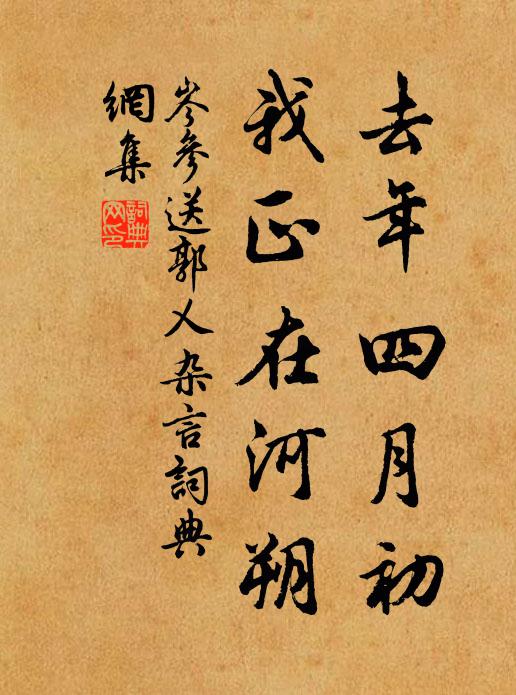 去年四月初
我正在河朔
岑參送郭乂杂言詞典
網集
詞典
网印